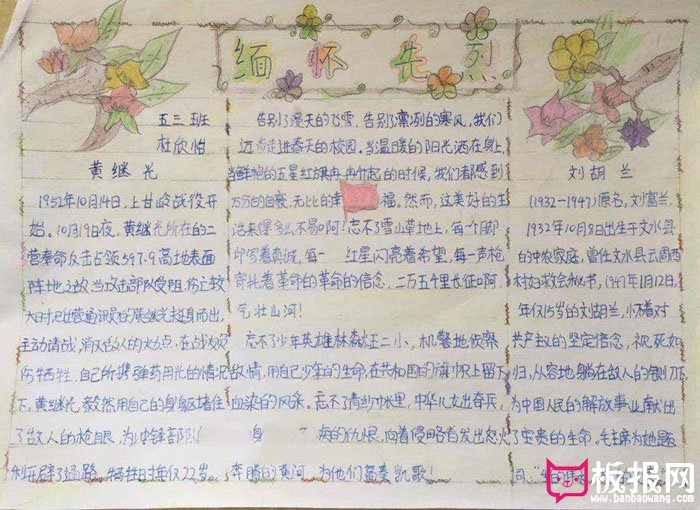 缅怀先烈
五三班
杜欣怡
黄继光
1952年10月14日,上甘岭战役开
始。10月19日夜,黄继光所在的二
营奉命反击占领597.9高地表面
阵地
主动请战
所牺牲,自己所携弹药用光的情况
下,黄继光毅然用自己的身躯堵住
了敌人的枪眼,为冲锋部队
牺牲时年仅22岁。
告别了漫天的飞雪,告别了凛冽的寒风,我们
迈步走进春天的校园。当温暖的阳光洒在身上,
当鲜艳的五星红旗冉冉升起的时候,我们都感到
万分的自豪,无比的幸福。然而,这美好的生
活来得多么不易啊!忘不了雪山草地上,每一个脚
印写着真诚,每一 红星闪亮着希望,每一声枪
寄托着革命的革命的信念,二万五千里长征啊,
气壮山河!
忘不了少年英雄林森火王二小,机警地侦察
敌情,用自己少年的生命,在共和国的旗帜上留下
血染的风采。忘不了青纱帐里,中华儿女士奋兵,
身 族的仇恨,向着侵略者发出怒火
奔腾的黄河 为他们高奏凯歌!
刘胡兰
(1932-1947)原名,刘富兰,
1932年10月8日出生于文水县
的中农家庭,曾任文水县云周西
村妇救会秘书,1947年1月12日,
年仅15岁的刘胡兰,怀着对
共产主义的坚定信念,视死如
归,从容地躺在敌人的铡刀下
为中国人民的解放事业献出
了宝贵的生命。毛主席为她题
词:"生的伟大
板报网
www.banbaowang.com